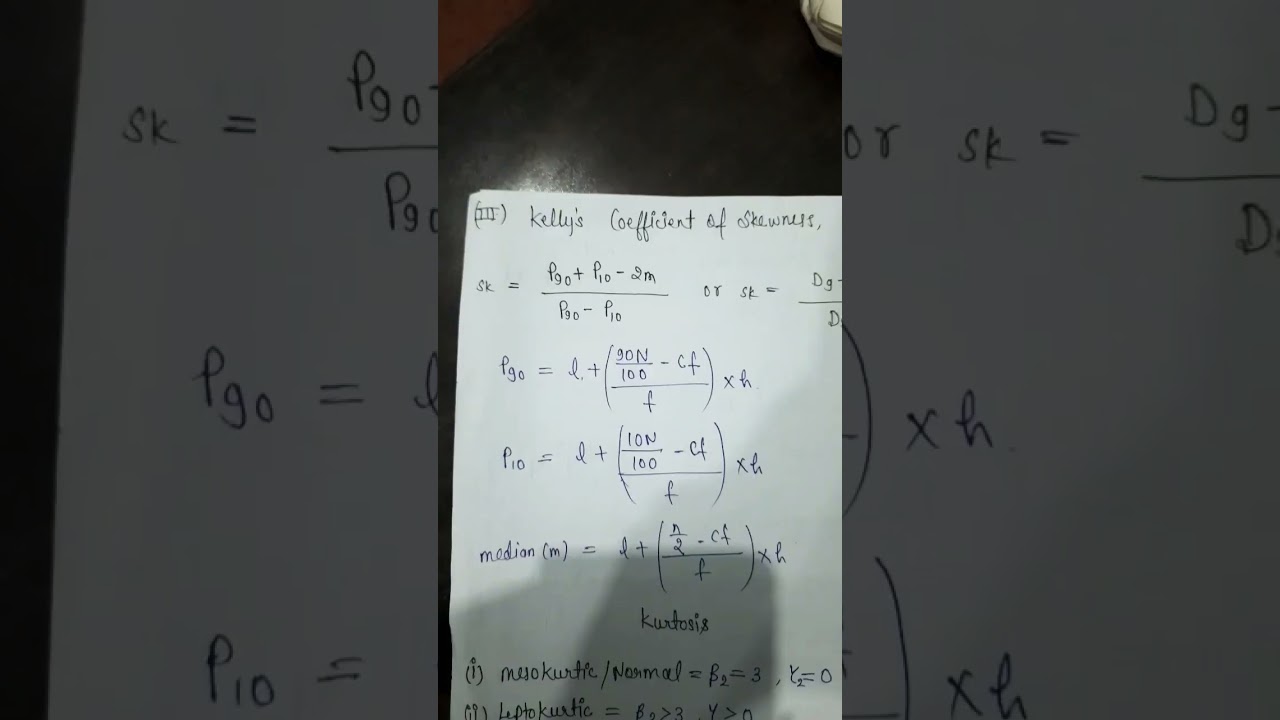 (III) Kelly's Coefficient of Skewness,
Sk = (P90 + P10 - 2m) / (P90 - P10) or Sk = D9
P90 = l + ((90N/100 - Cf) / f) × h.
P10 = l + ((10N/100 - Cf) / f) × h
median (m) = l + ((n/2 - cf) / f) × h
Kurtosis
(i) mesokurtic/Normal = β2 = 3, γ2 = 0
(ii) Leptokurtic = β2 > 3, γ > 0